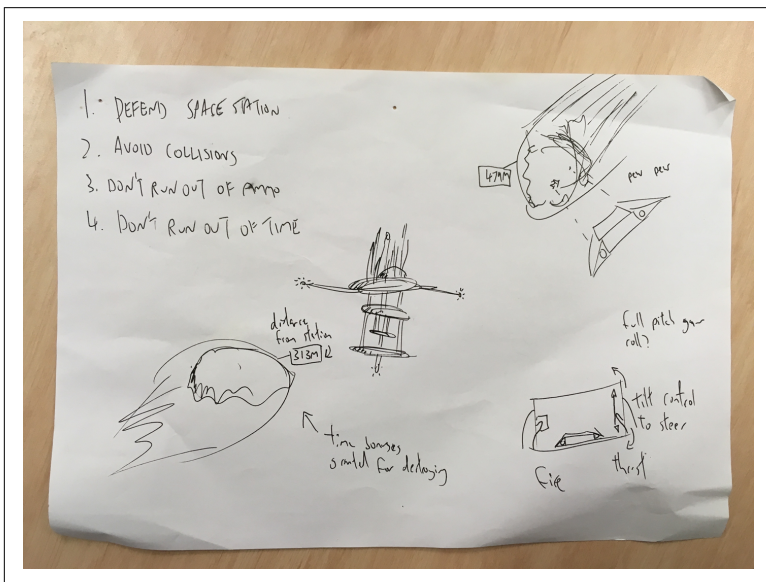 1. DEFEND SPACE STATION
2. AVOID COLLISIONS
3. DON'T RUN OUT OF AMMO
4. DON'T RUN OUT OF TIME
479M
pew pew
distance
from station
313M
time bonuses
for destroying
full pitch yaw
roll?
tilt control
to steer
thrust
Fire